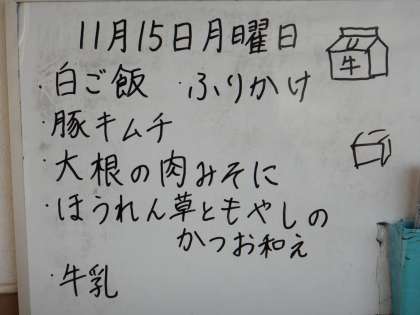 11月15日月曜日
・白ご飯 ・ふりかけ
・豚キムチ
・大根の肉みそに
・ほうれん草ともやしの
かつお和え
・牛乳
牛